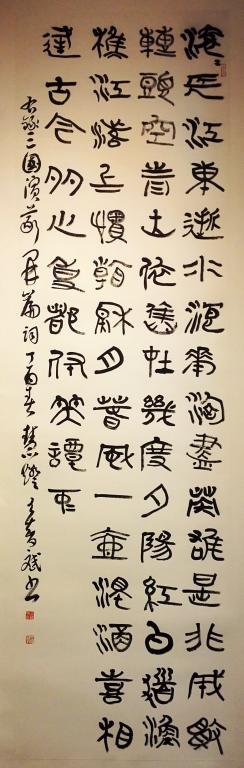 滾滾長江東逝水浪花淘盡英雄是非成敗
轉頭空青山依舊在幾度夕陽紅白髮漁
樵江渚上慣看秋月春風一壺濁酒喜相
逢古今多少事都付笑譚中
右錄三國演義開篇詞丁酉春